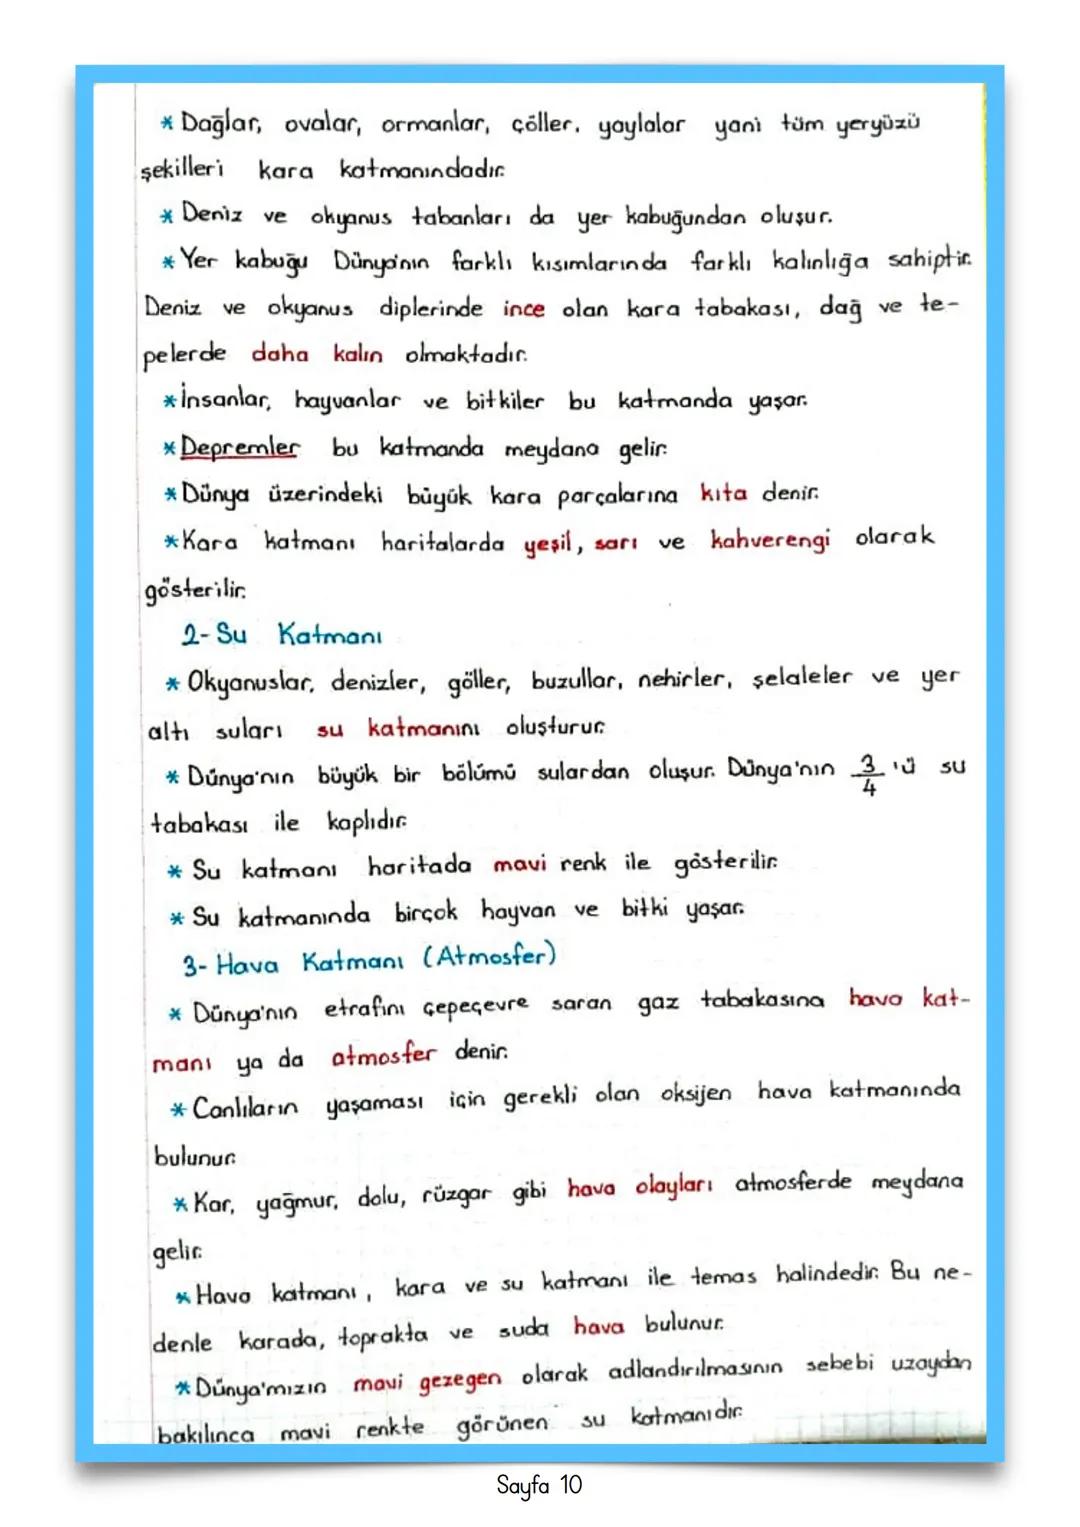 * Dağlar, ovalar, ormanlar, çöller, yaylalar yani tüm yeryüzü
şekilleri kara katmanındadır.
* Deniz ve okyanus tabanları da yer kabuğundan oluşur.
* Yer kabuğu Dünya'nın farklı kısımlarında farklı kalınlığa sahiptir.
Deniz ve okyanus diplerinde ince olan kara tabakası, dağ ve te-
pelerde daha kalın olmaktadır.
* İnsanlar, hayvanlar ve bitkiler bu katmanda yaşar.
* Depremler bu katmanda meydana gelir.
* Dünya üzerindeki büyük kara parçalarına kıta denir.
* Kara katmanı haritalarda yeşil, sarı ve kahverengi olarak
gösterilir.
2- Su Katmanı
* Okyanuslar, denizler, göller, buzullar, nehirler, şelaleler ve yer
altı suları su katmanını oluşturur.
* Dünya'nın büyük bir bölümü sulardan oluşur. Dünya'nın 3/4 'ü su
tabakası ile kaplıdır.
* Su katmanı haritada mavi renk ile gösterilir.
* Su katmanında birçok hayvan ve bitki yaşar.
3- Hava Katmanı (Atmosfer)
* Dünya'nın etrafını çepeçevre saran gaz tabakasına hava kat-
manı ya da atmosfer denir.
* Canlıların yaşaması için gerekli olan oksijen hava katmanında
bulunur.
* Kar, yağmur, dolu, rüzgar gibi hava olayları atmosferde meydana
gelir.
* Hava katmanı, kara ve su katmanı ile temas halindedir. Bu ne-
denle karada, toprakta ve suda hava bulunur.
* Dünya'mızın mavi gezegen olarak adlandırılmasının sebebi uzaydan
bakılınca mavi renkte görünen su katmanıdır.
Sayfa 10